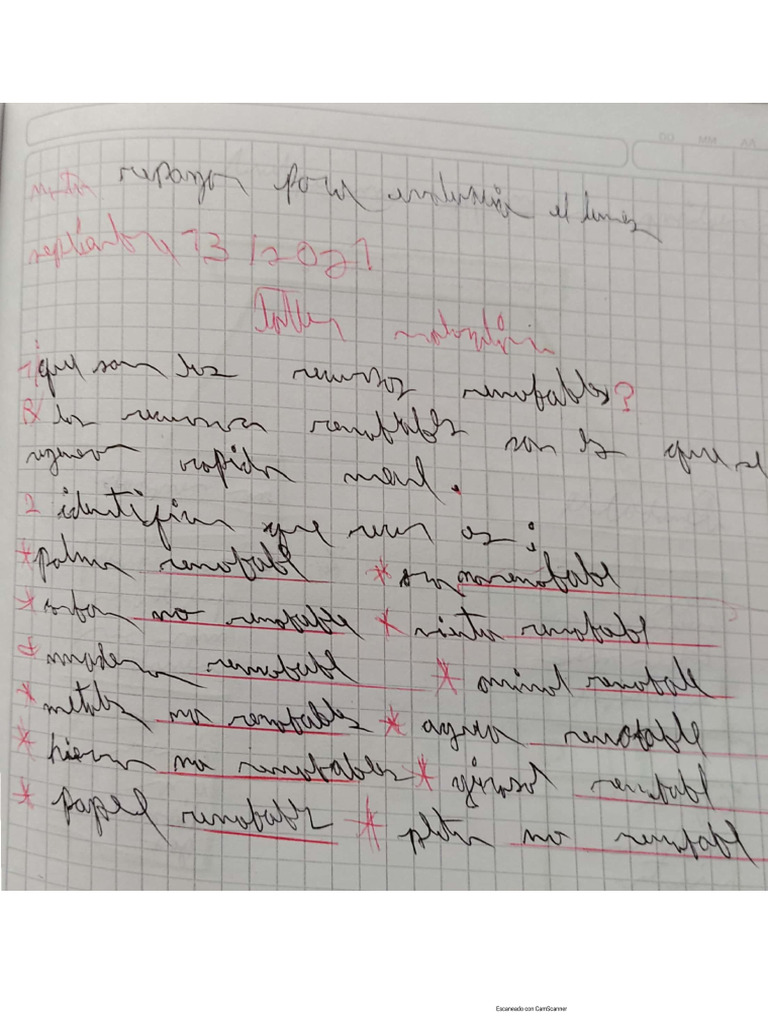 nota repazar para evaluasión el lunes
septiembre 13/2021
Taller
1) ¿que son los recursos renofables?
R/ los recursos renofables son los que se
regeneran rapida ment.
2 identifica que recurs os ;
*palma renofabl *oro no renofabl
*carbon no renofable *viento renofabl
*madera renofabl *animal renofabl
*metales no renofables *agua renofable
*hierro no renofables *girasol renofabl
*papel renofable *plata no renofabl
Escaneado con CamScanner